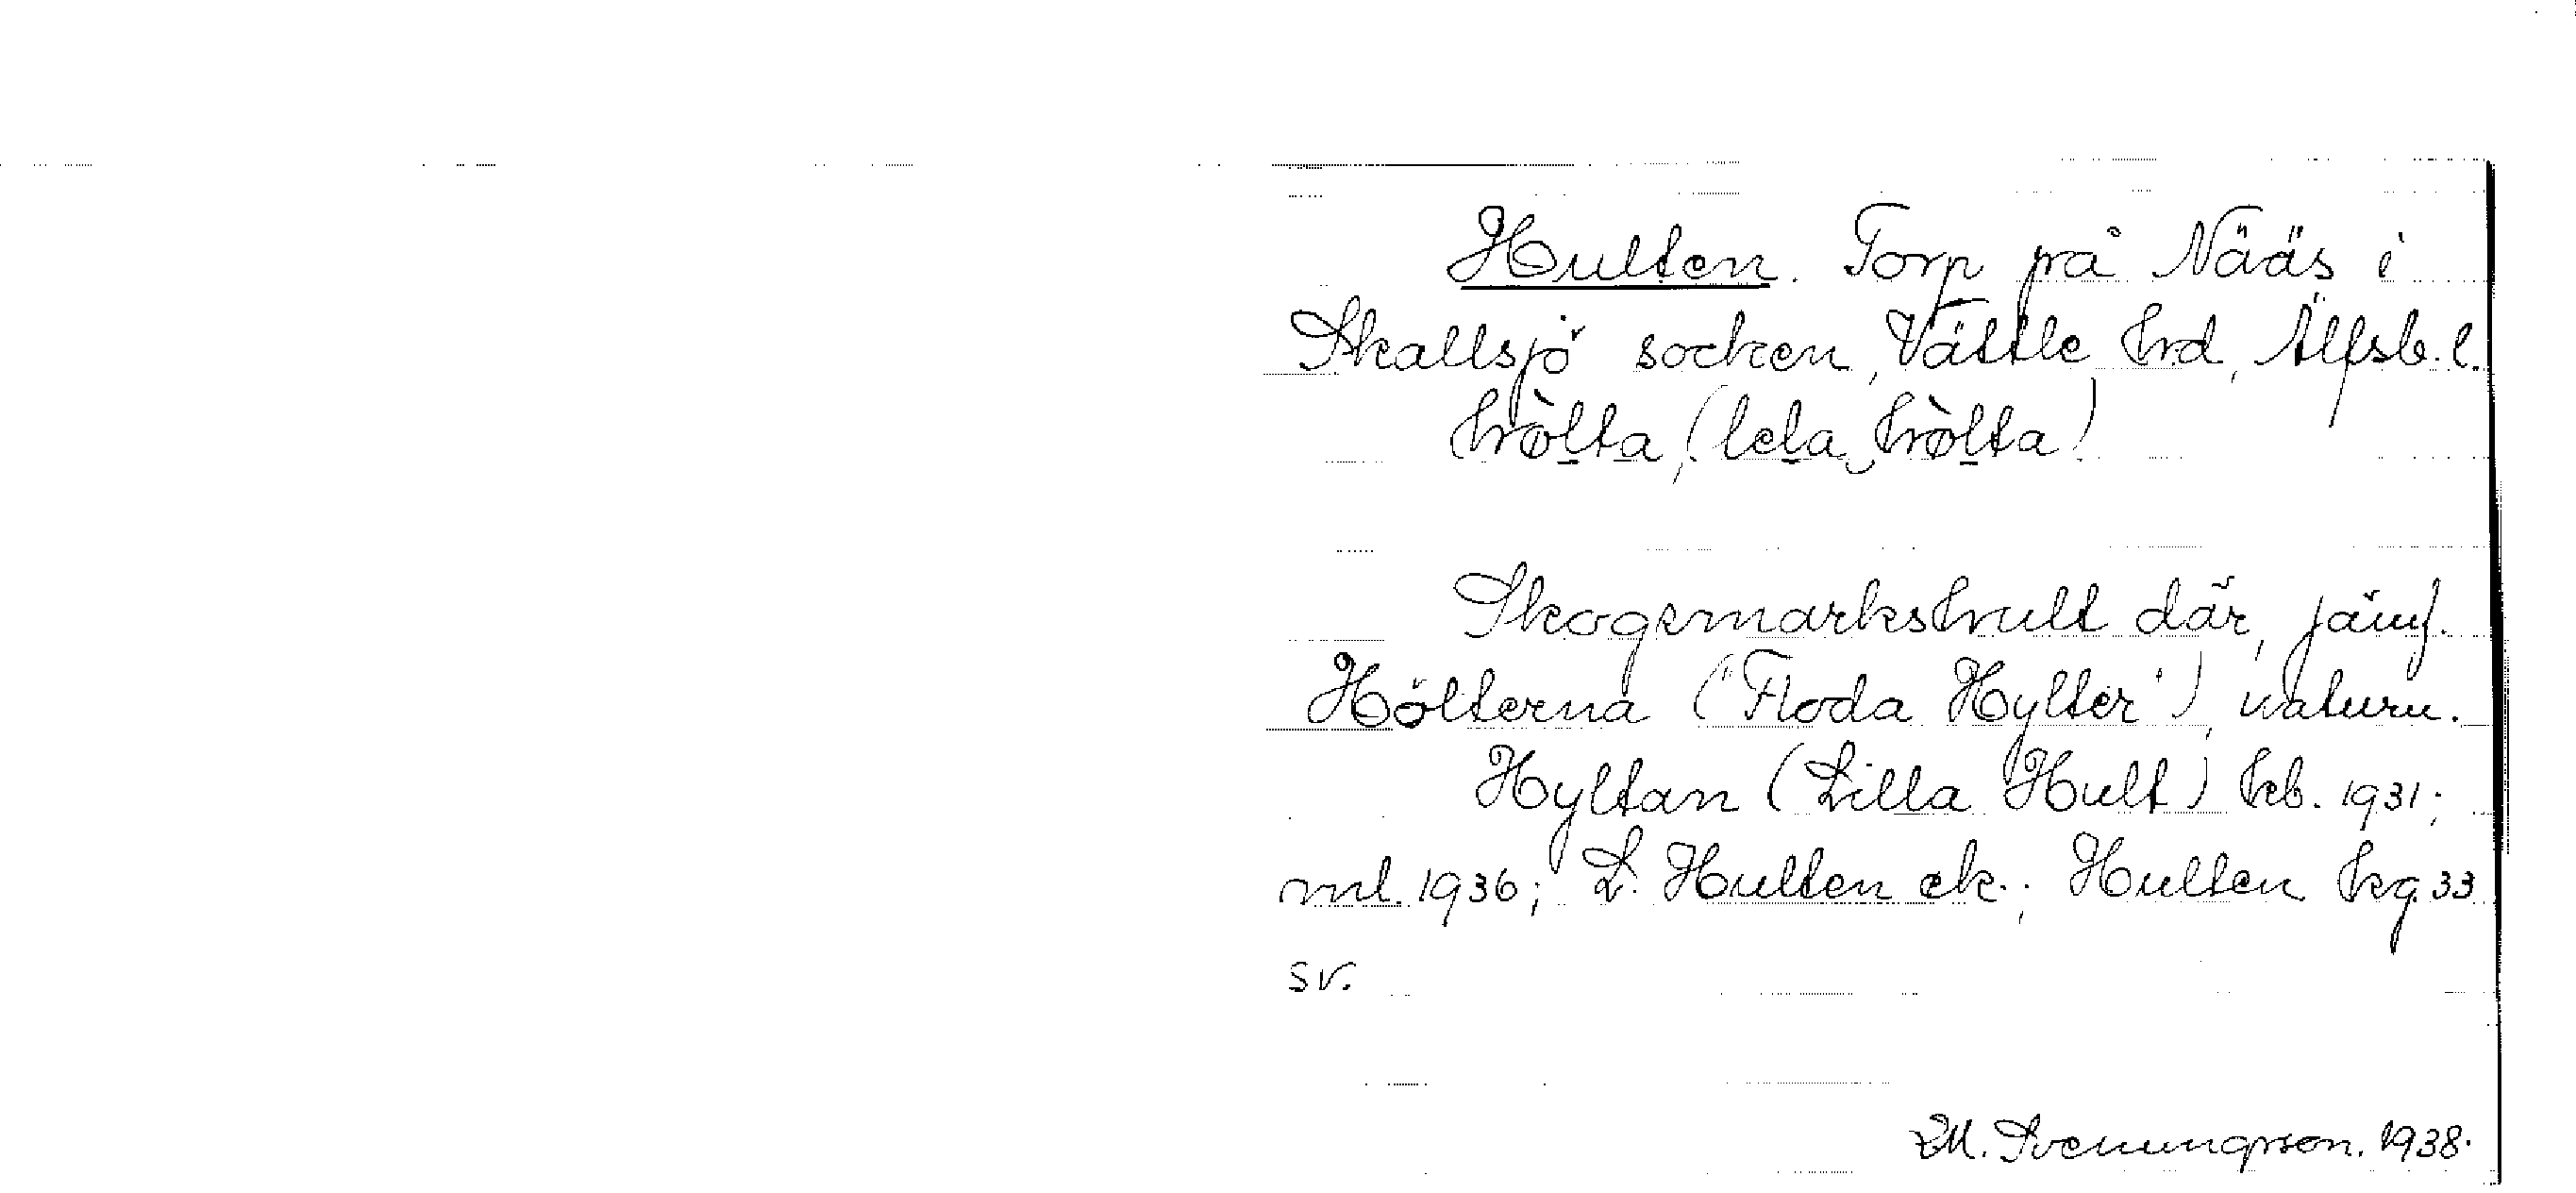 Hulten. Torp på Nääs i
Skallsjö socken, Vättle hrd, Älfsb. l.
hòlta, (lela hòlta)
Skogsmarkshult där, jämf.
Hölterna ("Floda Hylter"), naturn.
Hyltan (Lilla Hult) kb. 1931;
ml. 1936; L. Hulten ek.; Hulten kg. 33
sv.
M. Svenungsson. 1938.